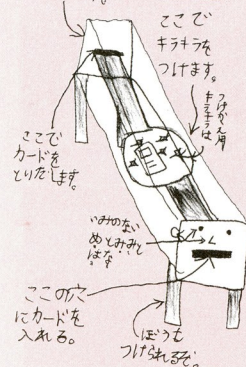 ここで
キラキラを
つけます。
つけかえ用
キラキラは
ここで
カードを
とりだします。
いみのない
めとみみと
はな
ここの穴
にカードを
入れる。
ぼうも
つけられるぞ。